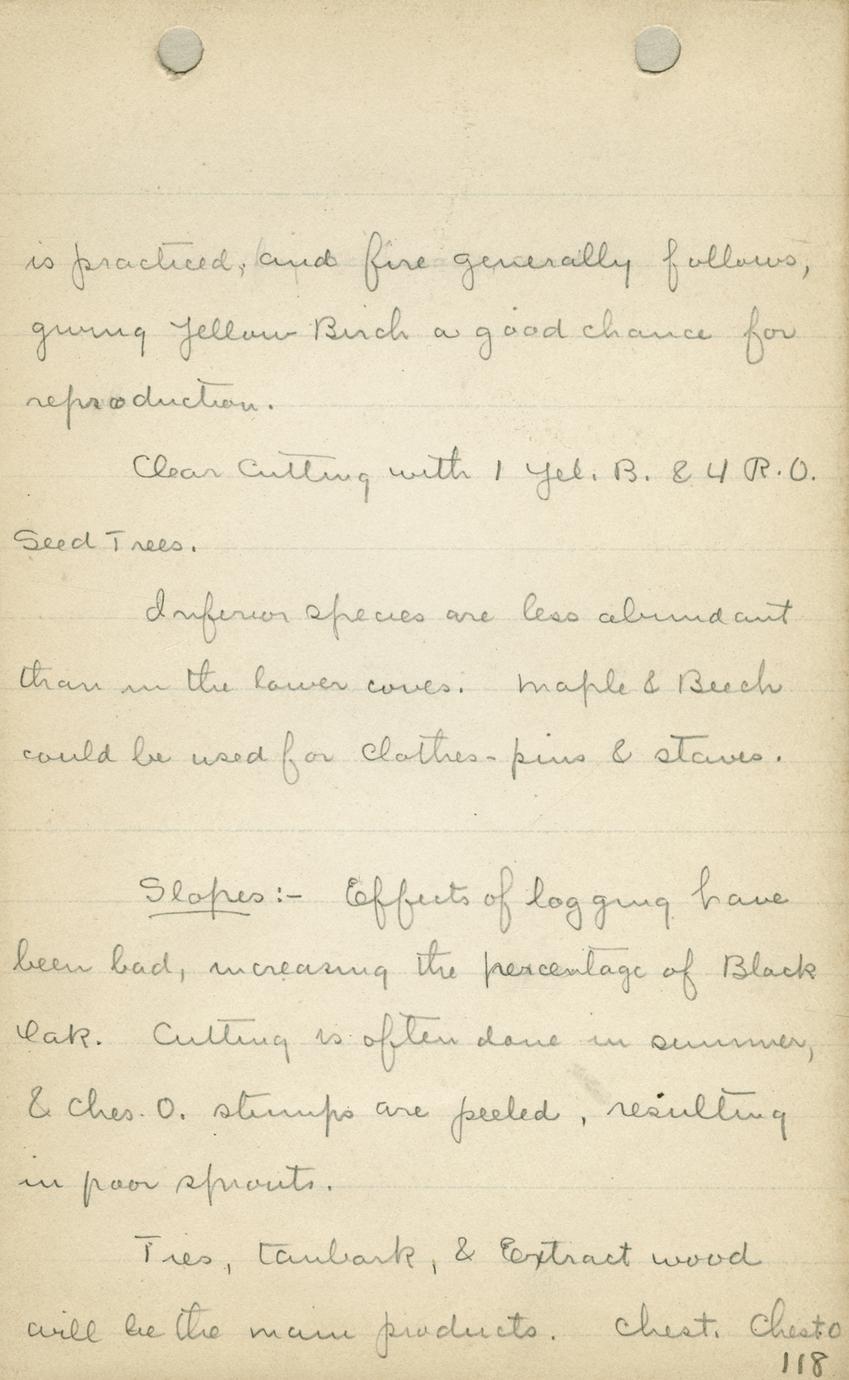 is practiced, and fire generally follows,
giving Yellow Birch a good chance for
reproduction.
Clear Cutting with 1 Yel. B. & 4 R.O.
Seed Trees.
Inferior species are less abundant
than in the lower coves. Maple & Beech
could be used for clothes-pins & staves.
Slopes:- Effects of logging have
been bad, increasing the percentage of Black
Oak. Cutting is often done in summer,
& Ches. O. stumps are peeled, resulting
in poor sprouts.
Ties, tanbark, & Extract wood
will be the main products. Chest. Chest O
118